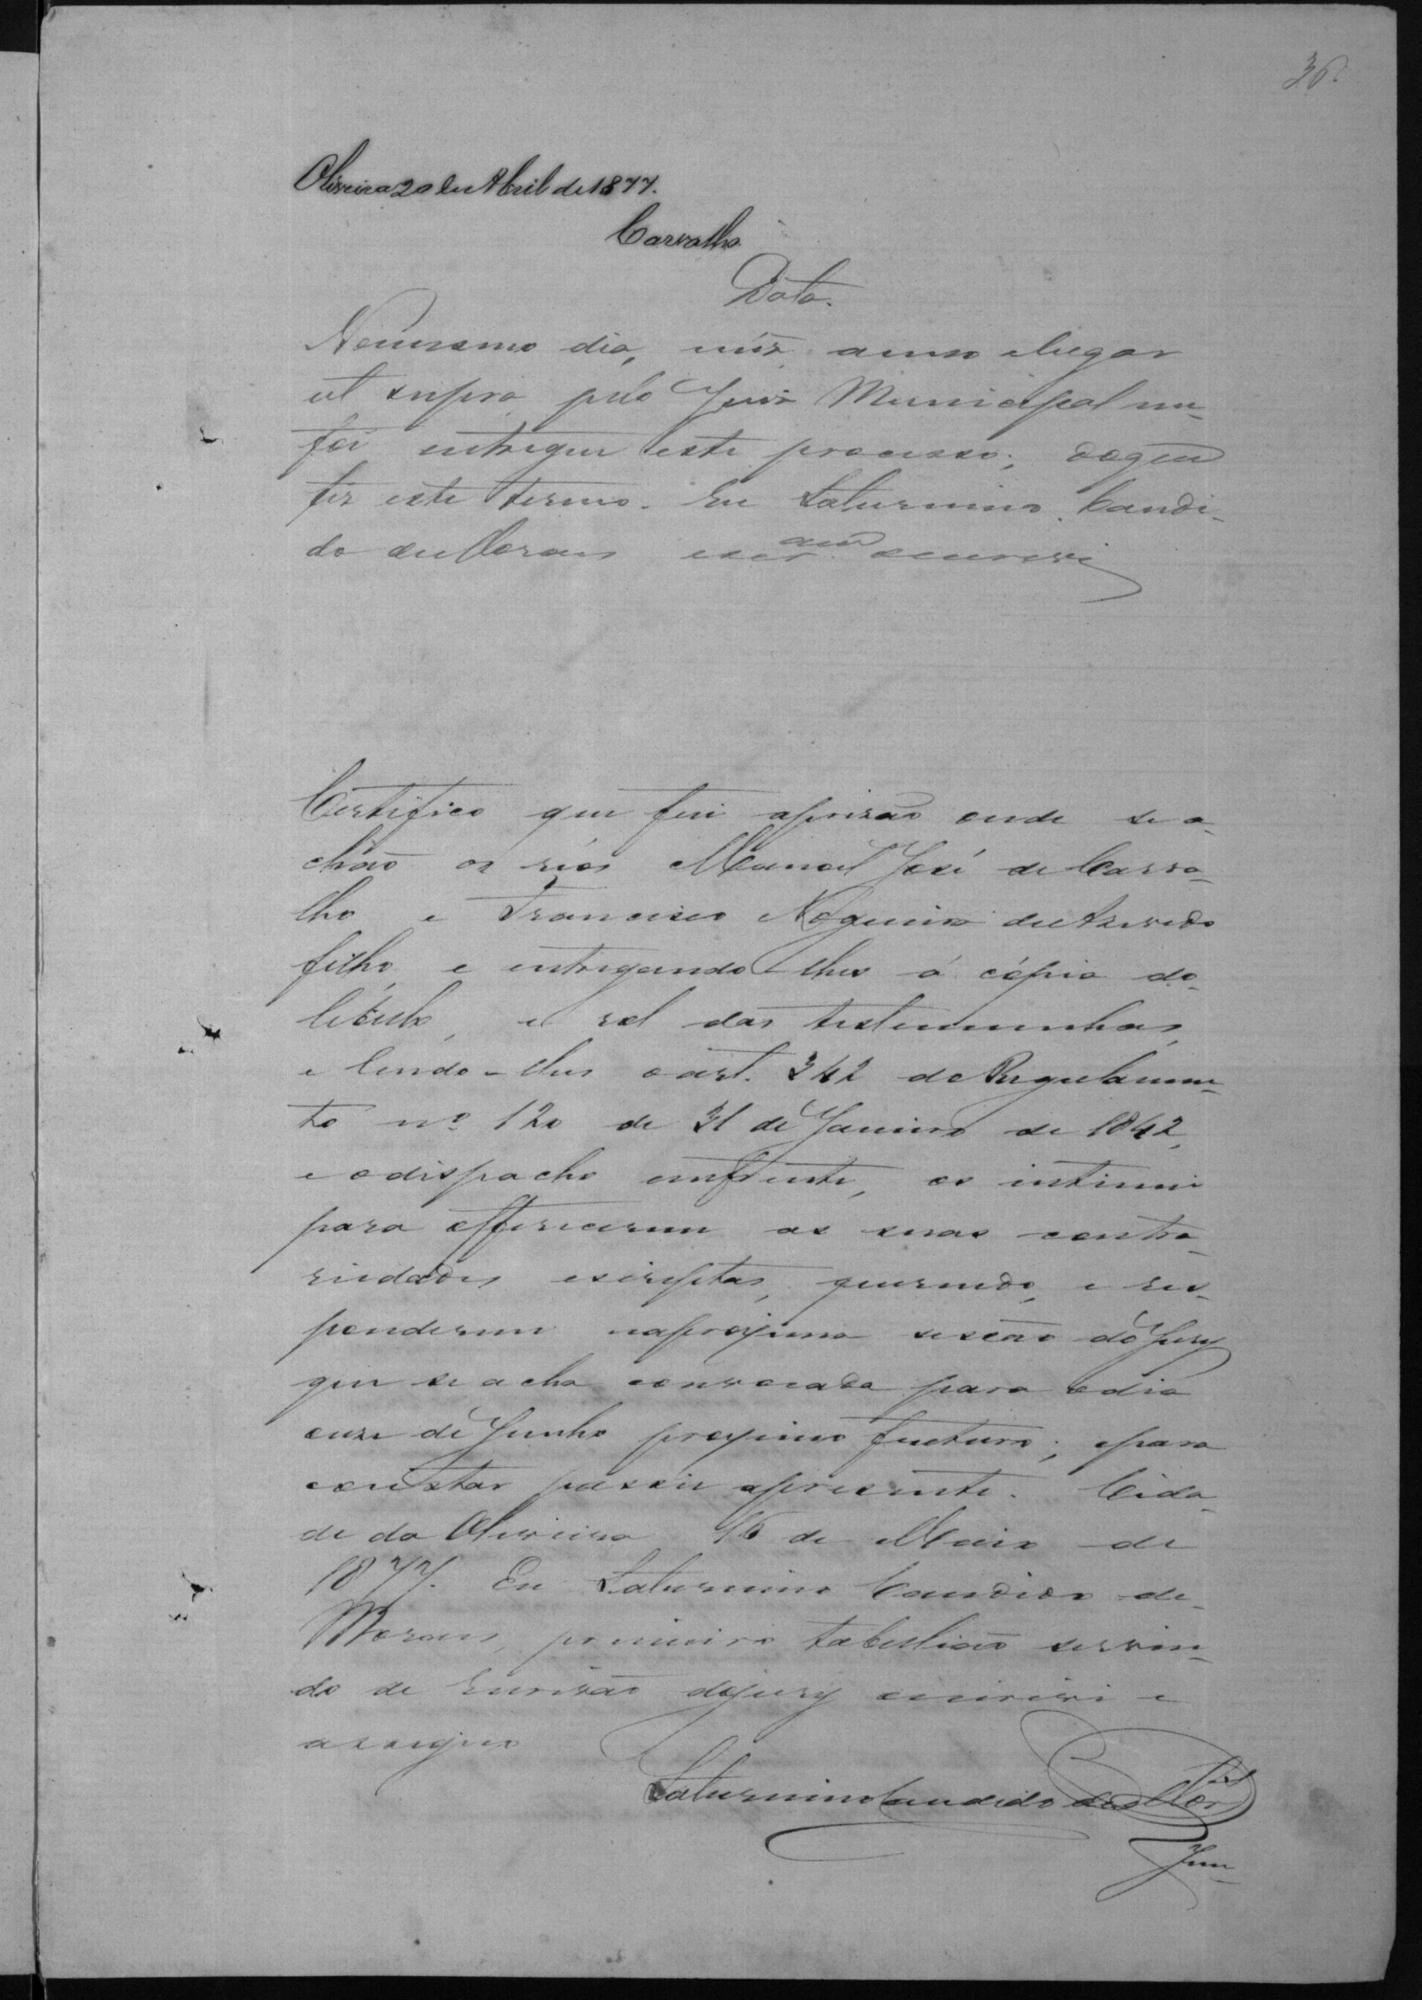 36.
Oliveira 20 de Abril de 1877.
Carvalho
Data.
No mesmo dia, mês anno e lugar
ut supra pelo Juiz Municipal me
foi entregue este processo; do que
fiz este termo. Eu Saturnino Candi-
do de Moraes escr.am escrevi
Certifico que fui a prisão onde se a-
chão os réos Manoel José de Carva-
lho e Francisco Nogueira de Azevedo
filho, e entregando-lhes a cópia do
libello, e rol das testemunhas,
e lendo-lhes o art. 342 do Regulamen-
to nº 120 de 31 de Janeiro de 1842,
e o dispacho emfrente, os intimei
para offerecerem as suas contra-
riedades escriptas, querendo, e res-
ponderem na proxima sessão do Jury
que se acha convocada para o dia
onze de Junho proximo futuro; e para
constar passei a presente. Cida-
de da Oliveira 16 de Maio de
1877. Eu Saturnino Candido de
Moraes, primeiro tabellião servin-
do de escrivão do jury escrevi e
assigno
Saturnino Candido de Mor.
Jun-